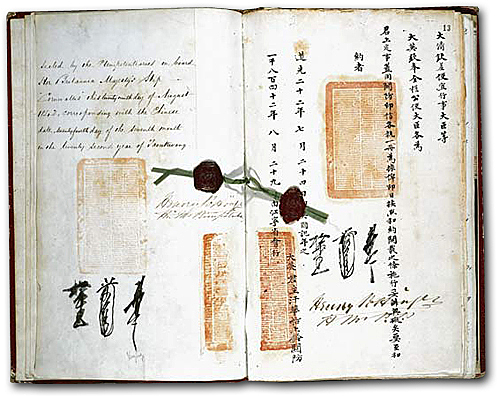 Sealed by the Plenipotentiaries on board
Her Britannic Majesty's Ship
Cornwallis this twenty ninth day of August
1842, corresponding with the Chinese
date, twenty fourth day of the seventh month
in the twenty second year of Taoukwang
Henry Pottinger
13
大清欽差便宜行事大臣等
大英欽奉全權公使大臣各為
君上定事蓋用關防印信各執一冊為據俾即日按照和約開載之條施行妥辦無礙矣要至和
約者
道光二十二年七月二十四日即英國記年之
一千八百四十二年八月二十九日由江寧省行
大英汗華船上鈐關防
Henry Pottinger